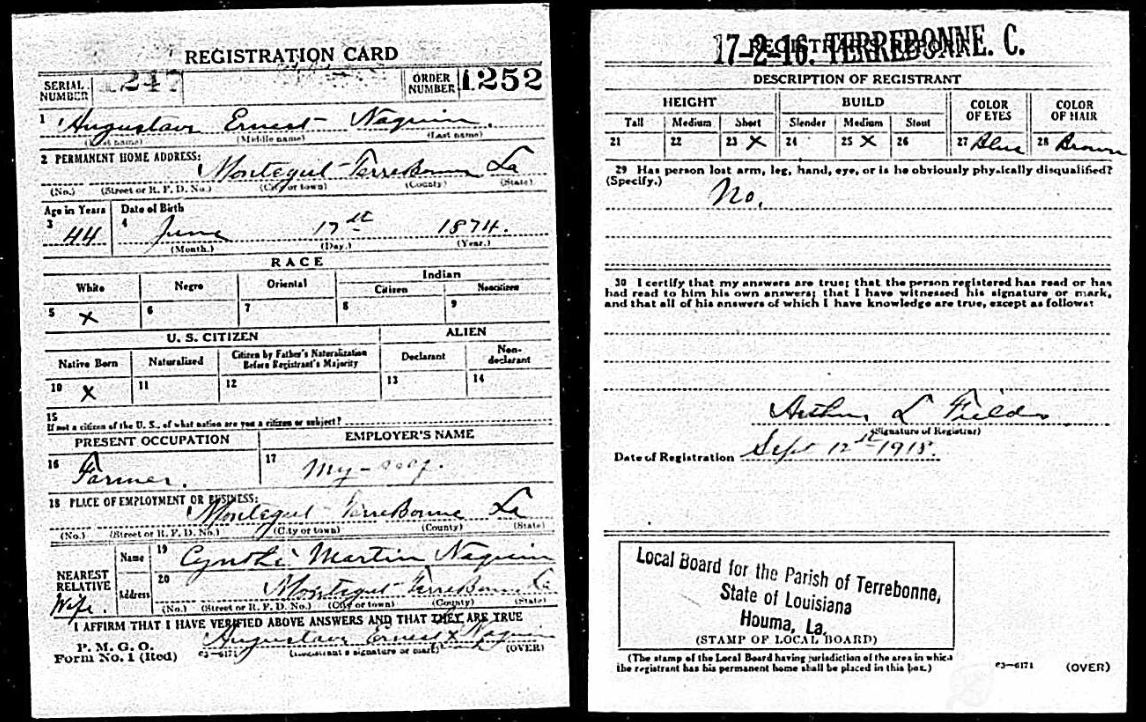 REGISTRATION CARD
SERIAL NUMBER 1247 ORDER NUMBER 1252
1 Augustave Ernest Naquin.
(First name) (Middle name) (Last name)
2 PERMANENT HOME ADDRESS:
Montegut TerreBonne La
(No.) (Street or R. F. D. No.) (City or town) (County) (State)
Age in Years Date of Birth
3 44 4 June 17th 1874.
(Month.) (Day.) (Year.)
RACE
White Negro Oriental Indian
Citizen Noncitizen
5 X 6 7 8 9
U. S. CITIZEN ALIEN
Native Born Naturalized Citizen by Father's Naturalization Before Registrant's Majority Declarant Non-declarant
10 X 11 12 13 14
15
If not a citizen of the U. S., of what nation are you a citizen or subject?
PRESENT OCCUPATION EMPLOYER'S NAME
16 Farmer. 17 My-self.
18 PLACE OF EMPLOYMENT OR BUSINESS:
Montegut TerreBonne La
(No.) (Street or R. F. D. No.) (City or town) (County) (State)
NEAREST RELATIVE Wife. Name 19 Cynthi Martin Naquin
Address 20 Montegut TerreBonne La
(No.) (Street or R. F. D. No.) (City or town) (County) (State)
I AFFIRM THAT I HAVE VERIFIED ABOVE ANSWERS AND THAT THEY ARE TRUE
P. M. G. O.
Form No. 1 (Red) c3—6171 Augustave Ernest X Naquin
(Registrant's signature or mark) (OVER)
17-2-16. TERREBONNE. C.
REGISTRAR'S REPORT
DESCRIPTION OF REGISTRANT
HEIGHT BUILD COLOR OF EYES COLOR OF HAIR
Tall Medium Short Slender Medium Stout
21 22 23 X 24 25 X 26 27 Blue 28 Brown
29 Has person lost arm, leg, hand, eye, or is he obviously physically disqualified?
(Specify.) No.
30 I certify that my answers are true; that the person registered has read or has
had read to him his own answers; that I have witnessed his signature or mark,
and that all of his answers of which I have knowledge are true, except as follows:
Arthur L Fields
(Signature of Registrar)
Date of Registration Sept 12th 1918.
Local Board for the Parish of Terrebonne,
State of Louisiana
Houma, La.
(STAMP OF LOCAL BOARD)
(The stamp of the Local Board having jurisdiction of the area in which
the registrant has his permanent home shall be placed in this box.)
c3—6171 (OVER)